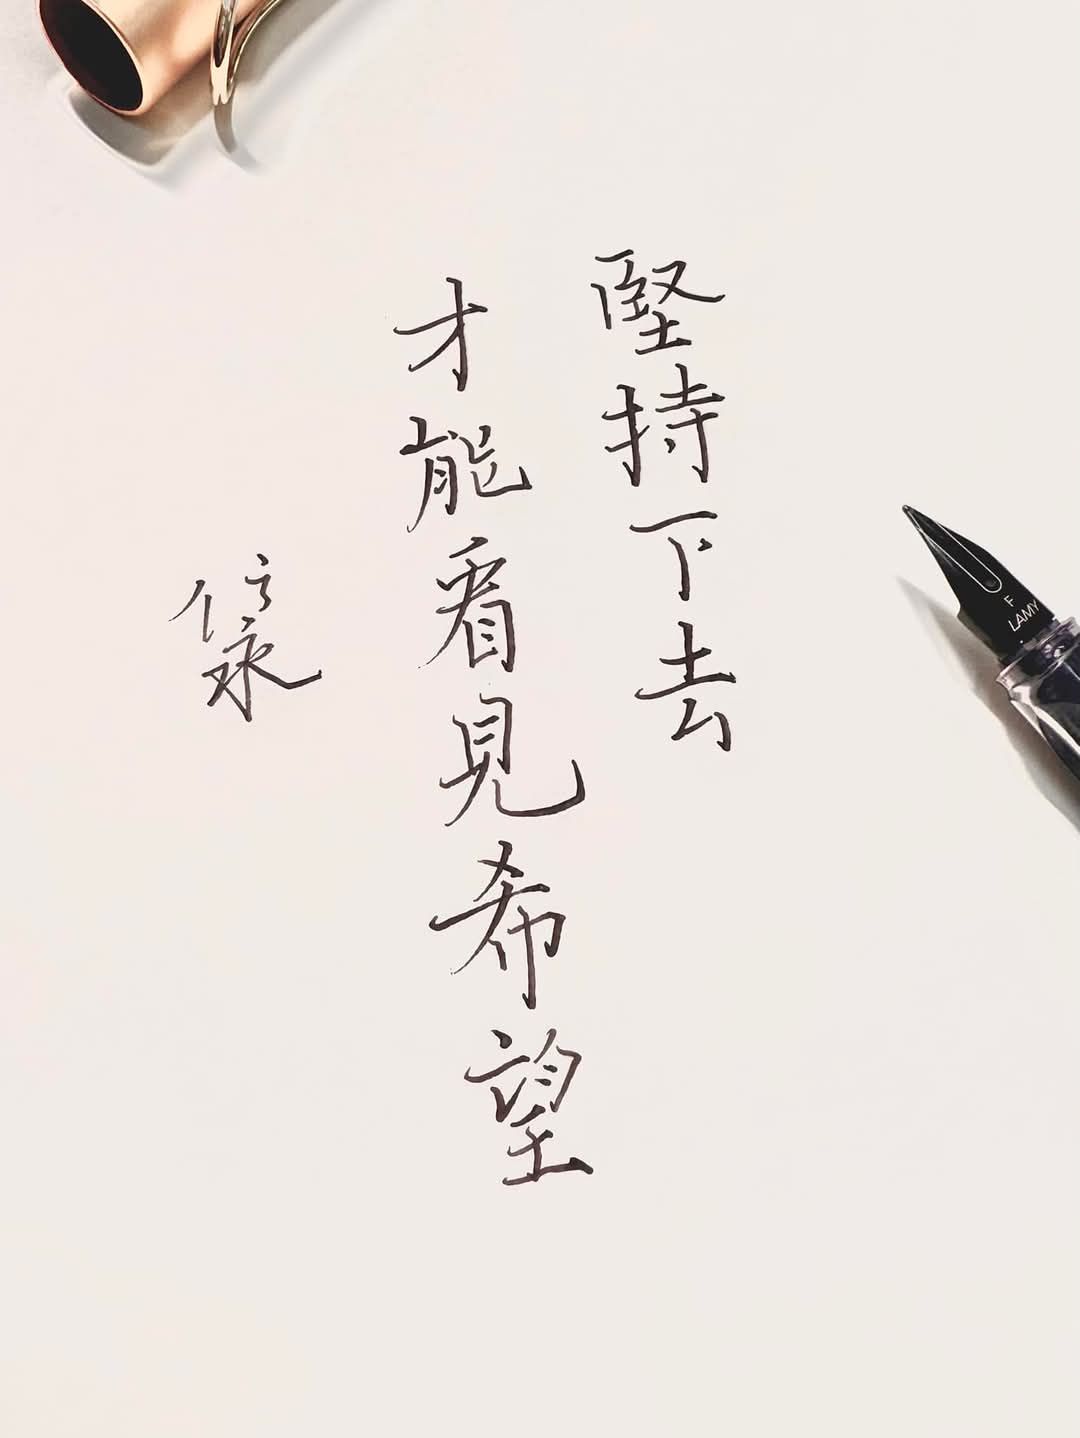 堅持下去
才能看見希望
F
LAMY